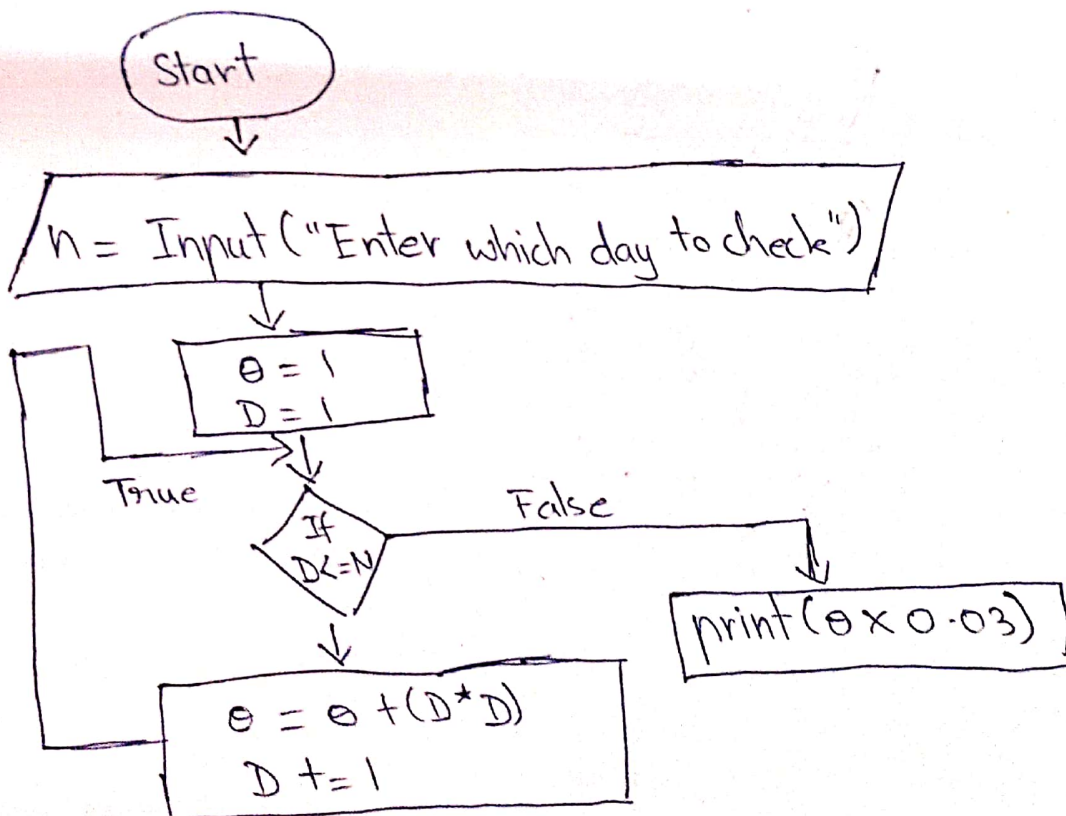 Start
n = Input ("Enter which day to check")
θ = 1
D = 1
True
False
If
D<=N
print(θ x 0.03)
θ = θ + (D*D)
D += 1